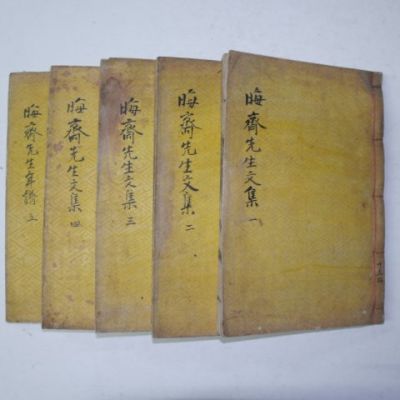 晦齋先生文集 一
晦齋先生文集 二
晦齋先生文集 三
晦齋先生文集 四
晦齋先生年譜 五